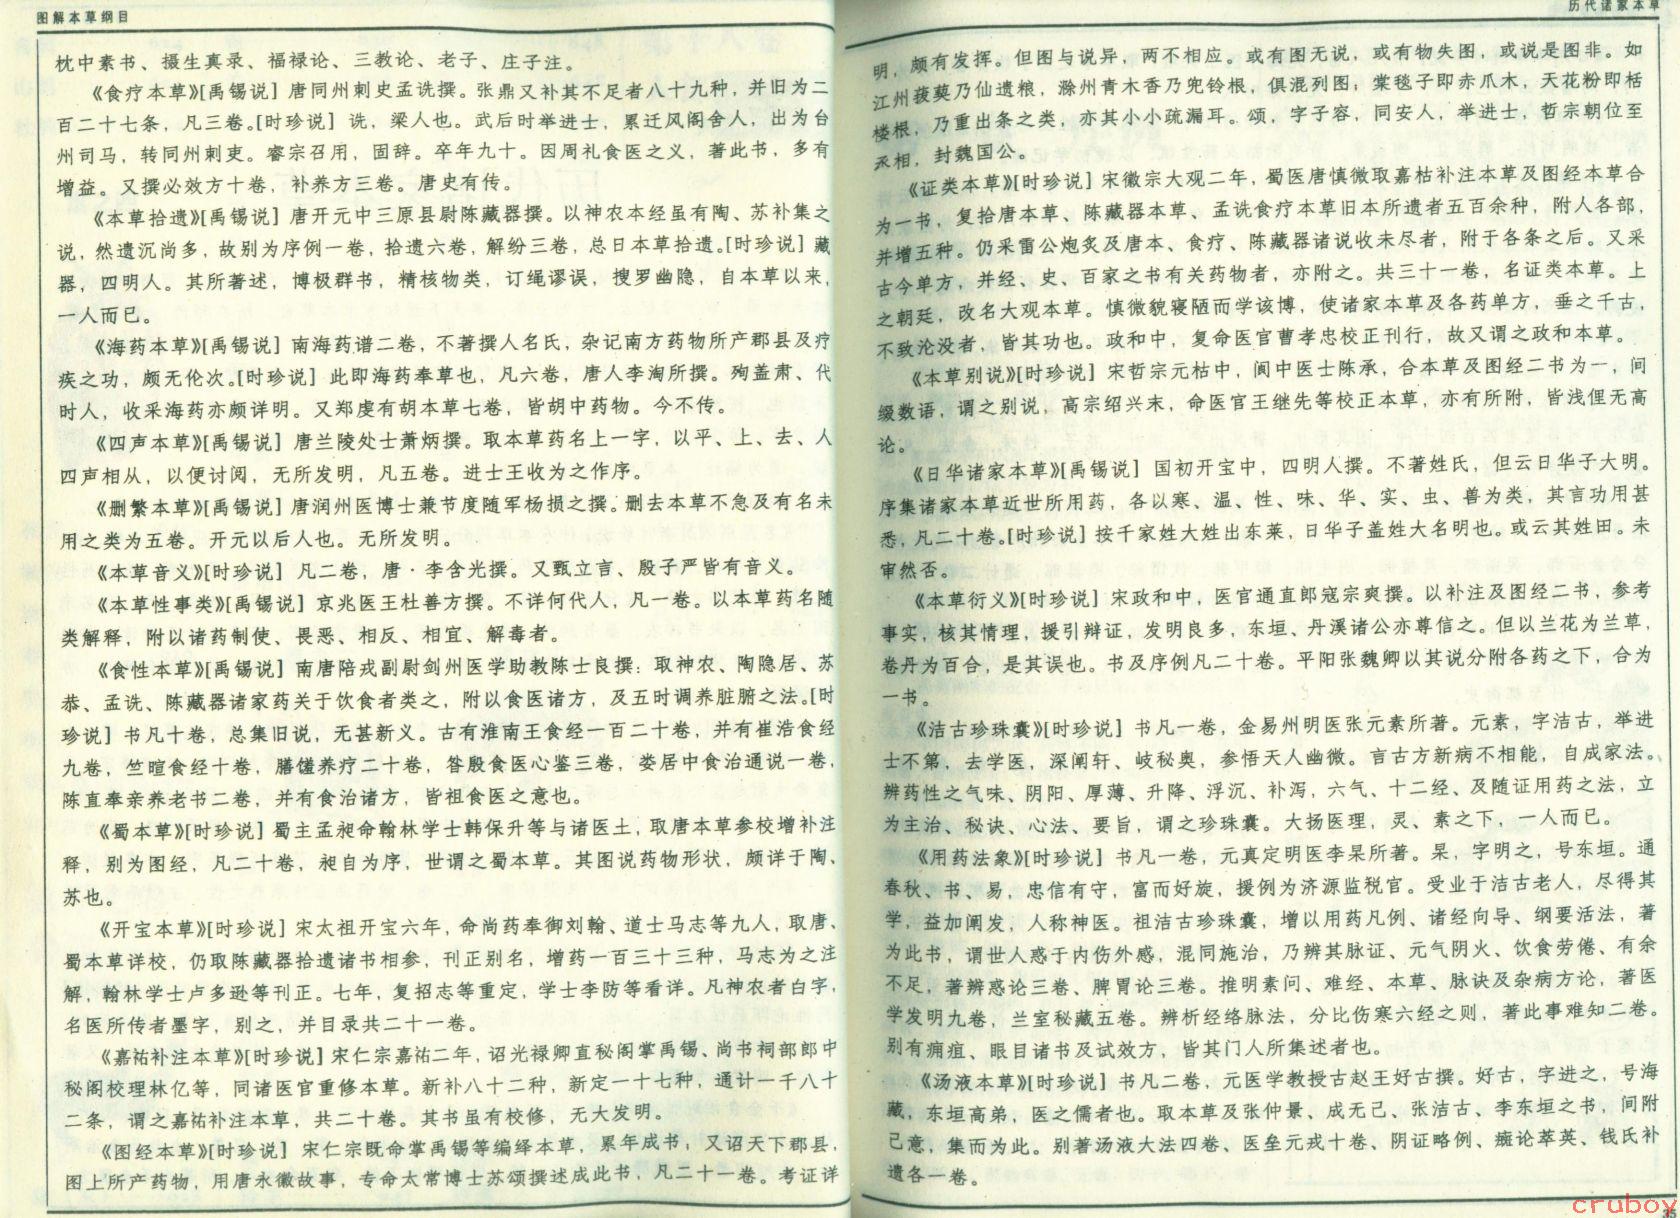 图解本草纲目
枕中素书、摄生真录、福禄论、三教论、老子、庄子注。
《食疗本草》[禹锡说] 唐同州刺史孟诜撰。张鼎又补其不足者八十九种，并旧为二
百二十七条，凡三卷。[时珍说] 诜，梁人也。武后时举进士，累迁凤阁舍人，出为台
州司马，转同州刺吏。睿宗召用，固辞。卒年九十。因周礼食医之义，著此书，多有
增益。又撰必效方十卷，补养方三卷。唐史有传。
《本草拾遗》[禹锡说] 唐开元中三原县尉陈藏器撰。以神农本经虽有陶、苏补集之
说，然遗沉尚多，故别为序例一卷，拾遗六卷，解纷三卷，总日本草拾遗。[时珍说] 藏
器，四明人。其所著述，博极群书，精核物类，订绳谬误，搜罗幽隐，自本草以来，
一人而已。
《海药本草》[禹锡说] 南海药谱二卷，不著撰人名氏，杂记南方药物所产郡县及疗
疾之功，颇无伦次。[时珍说] 此即海药奉草也，凡六卷，唐人李淘所撰。殉盖肃、代
时人，收采海药亦颇详明。又郑虔有胡本草七卷，皆胡中药物。今不传。
《四声本草》[禹锡说] 唐兰陵处士萧炳撰。取本草药名上一字，以平、上、去、人
四声相从，以便讨阅，无所发明，凡五卷。进士王收为之作序。
《删繁本草》[禹锡说] 唐润州医博士兼节度随军杨损之撰。删去本草不急及有名未
用之类为五卷。开元以后人也。无所发明。
《本草音义》[时珍说] 凡二卷，唐·李含光撰。又甄立言、殷子严皆有音义。
《本草性事类》[禹锡说] 京兆医王杜善方撰。不详何代人，凡一卷。以本草药名随
类解释，附以诸药制使、畏恶、相反、相宜、解毒者。
《食性本草》[禹锡说] 南唐陪戎副尉剑州医学助教陈士良撰：取神农、陶隐居、苏
恭、孟诜、陈藏器诸家药关于饮食者类之，附以食医诸方，及五时调养脏腑之法。[时
珍说] 书凡十卷，总集旧说，无甚新义。古有淮南王食经一百二十卷，并有崔浩食经
九卷，竺暄食经十卷，膳馐养疗二十卷，昝殷食医心鉴三卷，娄居中食治通说一卷，
陈直奉亲养老书二卷，并有食治诸方，皆祖食医之意也。
《蜀本草》[时珍说] 蜀主孟昶命翰林学士韩保升等与诸医土，取唐本草参校增补注
释，别为图经，凡二十卷，昶自为序，世谓之蜀本草。其图说药物形状，颇详于陶、
苏也。
《开宝本草》[时珍说] 宋太祖开宝六年，命尚药奉御刘翰、道士马志等九人，取唐、
蜀本草详校，仍取陈藏器拾遗诸书相参，刊正别名，增药一百三十三种，马志为之注
解，翰林学士卢多逊等刊正。七年，复招志等重定，学士李防等看详。凡神农者白字，
名医所传者墨字，别之，并目录共二十一卷。
《嘉祐补注本草》[时珍说] 宋仁宗嘉祐二年，诏光禄卿直秘阁掌禹锡、尚书祠部郎中
秘阁校理林亿等，同诸医官重修本草。新补八十二种，新定一十七种，通计一千八十
二条，谓之嘉祐补注本草，共二十卷。其书虽有校修，无大发明。
《图经本草》[时珍说] 宋仁宗既命掌禹锡等编绎本草，累年成书，又诏天下郡县，
图上所产药物，用唐永徽故事，专命太常博士苏颂撰述成此书，凡二十一卷。考证详
历代诸家本草
明，颇有发挥。但图与说异，两不相应。或有图无说，或有物失图，或说是图非。如
江州菝葜乃仙遗粮，滁州青木香乃兜铃根，俱混列图；棠毬子即赤爪木，天花粉即栝
楼根，乃重出条之类，亦其小小疏漏耳。颂，字子容，同安人，举进士，哲宗朝位至
丞相，封魏国公。
《证类本草》[时珍说] 宋徽宗大观二年，蜀医唐慎微取嘉枯补注本草及图经本草合
为一书，复拾唐本草、陈藏器本草、孟诜食疗本草旧本所遗者五百余种，附人各部，
并增五种。仍采雷公炮炙及唐本、食疗、陈藏器诸说收未尽者，附于各条之后。又采
古今单方，并经、史、百家之书有关药物者，亦附之。共三十一卷，名证类本草。上
之朝廷，改名大观本草。慎微貌寝陋而学该博，使诸家本草及各药单方，垂之千古，
不致沦没者，皆其功也。政和中，复命医官曹孝忠校正刊行，故又谓之政和本草。
《本草别说》[时珍说] 宋哲宗元枯中，阆中医士陈承，合本草及图经二书为一，间
缀数语，谓之别说，高宗绍兴末，命医官王继先等校正本草，亦有所附，皆浅俚无高
论。
《日华诸家本草》[禹锡说] 国初开宝中，四明人撰。不著姓氏，但云日华子大明。
序集诸家本草近世所用药，各以寒、温、性、味、华、实、虫、兽为类，其言功用甚
悉，凡二十卷。[时珍说] 按千家姓大姓出东莱，日华子盖姓大名明也。或云其姓田。未
审然否。
《本草衍义》[时珍说] 宋政和中，医官通直郎寇宗爽撰。以补注及图经二书，参考
事实，核其情理，援引辩证，发明良多，东垣、丹溪诸公亦尊信之。但以兰花为兰草，
卷丹为百合，是其误也。书及序例凡二十卷。平阳张魏卿以其说分附各药之下，合为
一书。
《洁古珍珠囊》[时珍说] 书凡一卷，金易州明医张元素所著。元素，字洁古，举进
士不第，去学医，深阐轩、岐秘奥，参悟天人幽微。言古方新病不相能，自成家法。
辨药性之气味、阴阳、厚薄、升降、浮沉、补泻，六气、十二经、及随证用药之法，立
为主治、秘诀、心法、要旨，谓之珍珠囊。大扬医理，灵、素之下，一人而已。
《用药法象》[时珍说] 书凡一卷，元真定明医李杲所著。杲，字明之，号东垣。通
春秋、书、易，忠信有守，富而好旋，援例为济源监税官。受业于洁古老人，尽得其
学，益加阐发，人称神医。祖洁古珍珠囊，增以用药凡例、诸经向导、纲要活法，著
为此书，谓世人惑于内伤外感，混同施治，乃辨其脉证、元气阴火、饮食劳倦、有余
不足，著辨惑论三卷、脾胃论三卷。推明素问、难经、本草、脉诀及杂病方论，著医
学发明九卷，兰室秘藏五卷。辨析经络脉法，分比伤寒六经之则，著此事难知二卷。
别有痈疽、眼目诸书及试效方，皆其门人所集述者也。
《汤液本草》[时珍说] 书凡二卷，元医学教授古赵王好古撰。好古，字进之，号海
藏，东垣高弟，医之儒者也。取本草及张仲景、成无己、张洁古、李东垣之书，间附
己意，集而为此。别著汤液大法四卷、医垒元戎十卷、阴证略例、癍论萃英、钱氏补
遗各一卷。
crubox